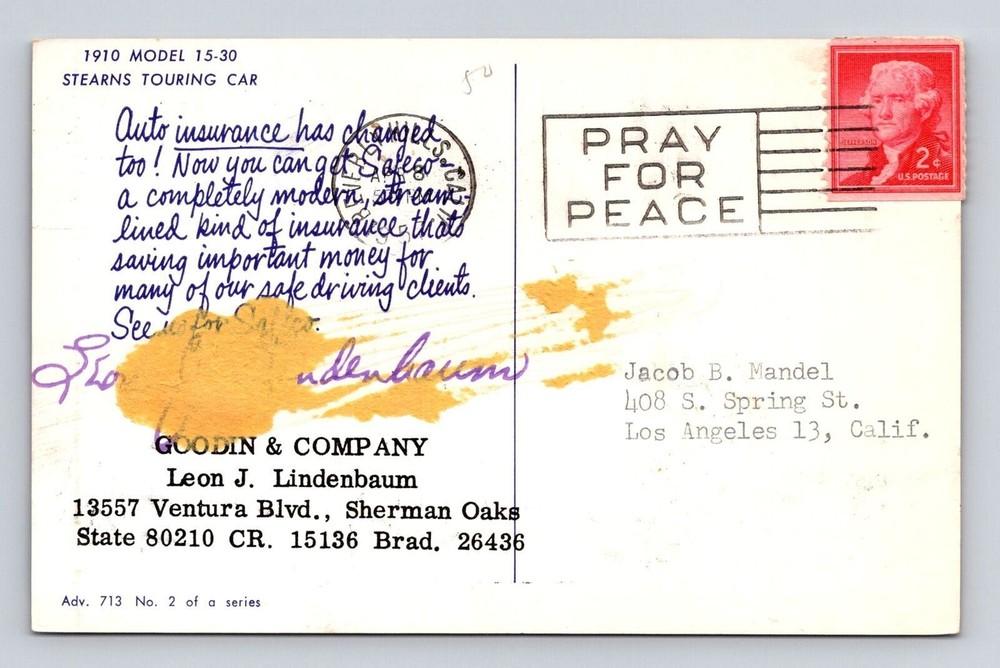 1910 MODEL 15-30
STEARNS TOURING CAR
50
Auto insurance has changed
too! Now you can get Safeco -
a completely modern, stream-
lined kind of insurance thats
saving important money for
many of our safe driving clients.
See us for Safeco.
ndenbaum
GOODIN & COMPANY
Leon J. Lindenbaum
13557 Ventura Blvd., Sherman Oaks
State 80210 CR. 15136 Brad. 26436
Adv. 713 No. 2 of a series
BEVERLY HILLS, CALIF.
PRAY
FOR
PEACE
JEFFERSON
2¢
U.S. POSTAGE
Jacob B. Mandel
408 S. Spring St.
Los Angeles 13, Calif.